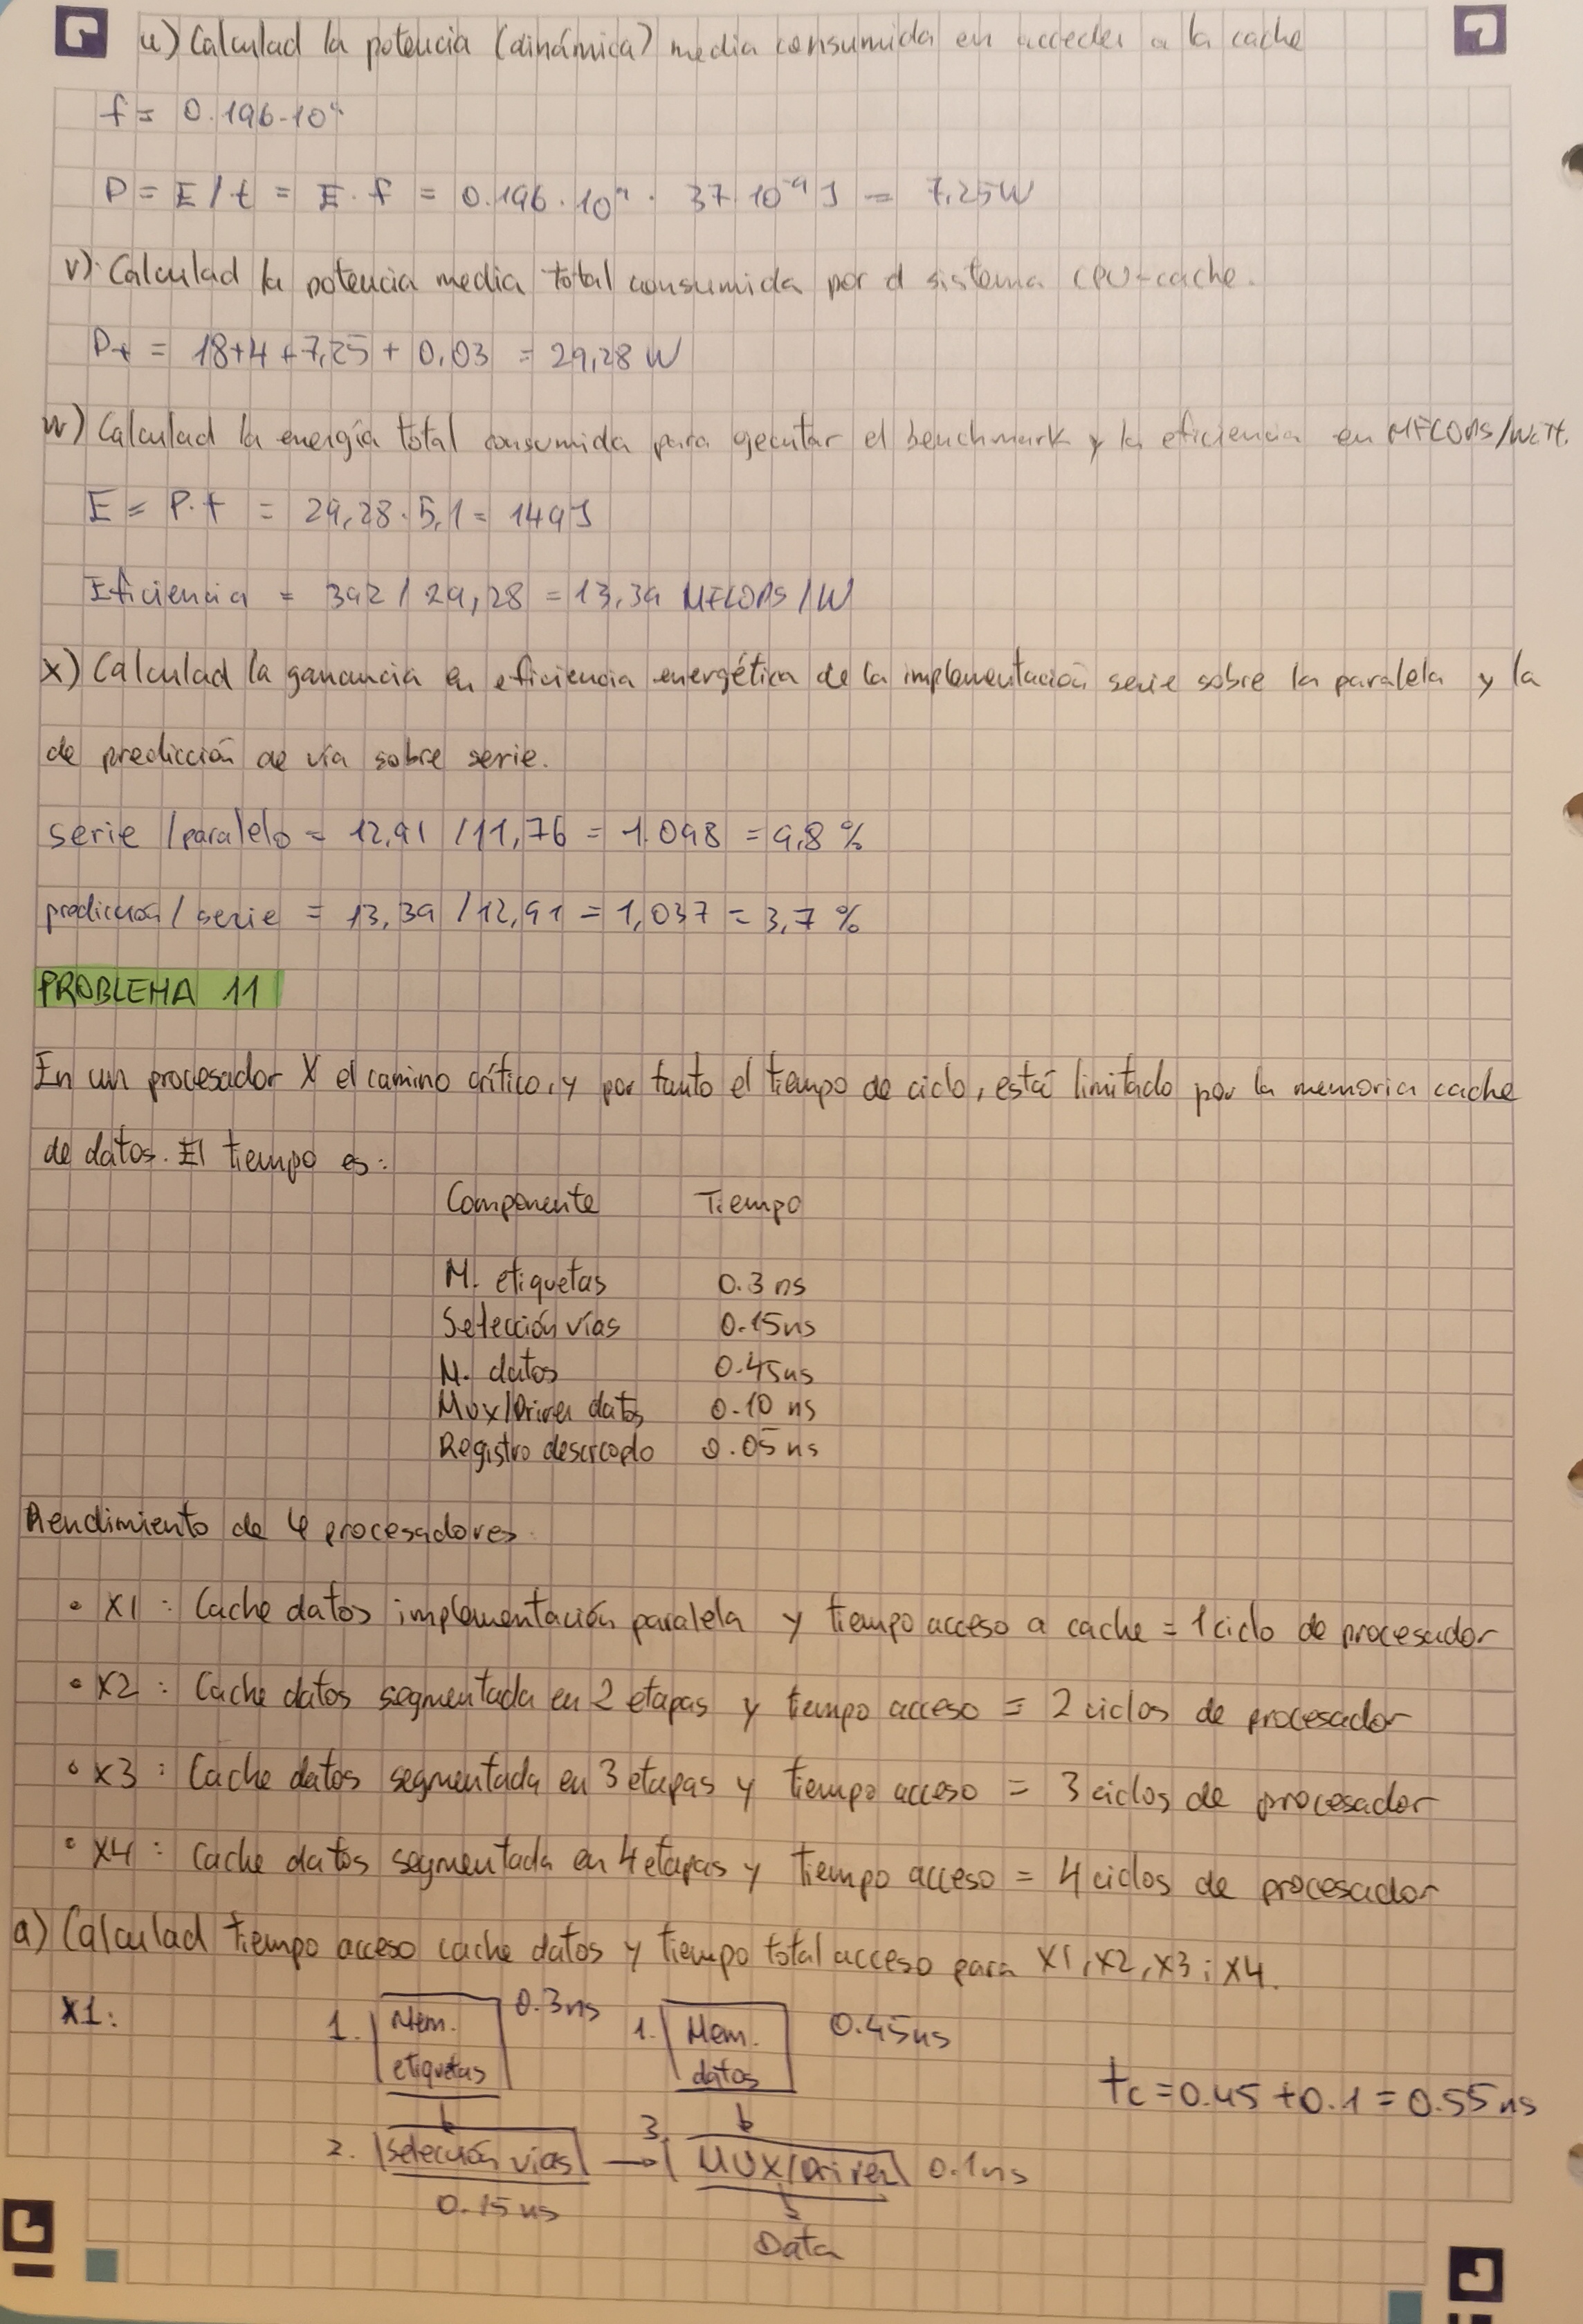 u) Calculad la potencia (dinámica) media consumida en acceder a la cache
f = 0.196·10⁹
P = E/t = E·f = 0.196·10⁹ · 37·10⁻⁹ J = 7,25W
v) Calculad la potencia media total consumida por el sistema CPU-cache.
Pt = 18+4+7,25+0,03 = 29,28 W
w) Calculad la energía total consumida para ejecutar el benchmark y la eficiencia en MFLOPS/Watt.
E = P·t = 29,28·5,1 = 149J
Eficiencia = 392 / 29,28 = 13,39 MFLOPS/W
x) Calculad la ganancia en eficiencia energética de la implementación serie sobre la paralela y la
de predicción de vía sobre serie.
serie / paralelo = 12,91 / 11,76 = 1.098 = 9,8 %
predicción / serie = 13,39 / 12,91 = 1,037 = 3,7 %
PROBLEMA 11
En un procesador X el camino crítico, y por tanto el tiempo de ciclo, está limitado por la memoria cache
de datos. El tiempo es:
Componente Tiempo
M. etiquetas 0.3 ns
Selección vías 0.15ns
M. datos 0.45ns
Mux/Driver datos 0.10 ns
Registro desacoplo 0.05 ns
Rendimiento de 4 procesadores:
• X1 : Cache datos implementación paralela y tiempo acceso a cache = 1 ciclo de procesador
• X2 : Cache datos segmentada en 2 etapas y tiempo acceso = 2 ciclos de procesador
• X3 : Cache datos segmentada en 3 etapas y tiempo acceso = 3 ciclos de procesador
• X4 : Cache datos segmentada en 4 etapas y tiempo acceso = 4 ciclos de procesador
a) Calculad tiempo acceso cache datos y tiempo total acceso para X1, X2, X3 i X4.
X1:
1. Mem. etiquetas 0.3ns
1. Mem. datos 0.45ns
tc = 0.45 + 0.1 = 0.55 ns
2. Selección vías → 3. MUX/Driver 0.1ns
0.15 ns
Data